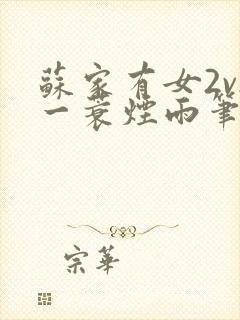 蘇家有女2v
一蓑煙雨筆
宗華